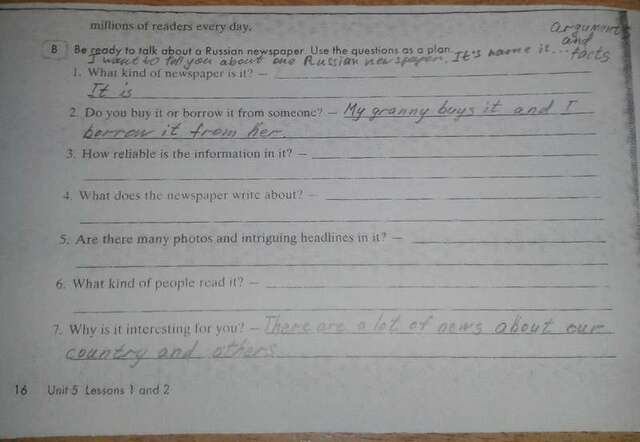 millions of readers every day.
arguments
and
facts
B Be ready to talk about a Russian newspaper. Use the questions as a plan.
I want to tell you about one Russian newspaper. It's name is...
1. What kind of newspaper is it? –
It is
2. Do you buy it or borrow it from someone? – My granny buys it and I
borrow it from her.
3. How reliable is the information in it? –
4. What does the newspaper write about? –
5. Are there many photos and intriguing headlines in it? –
6. What kind of people read it? –
7. Why is it interesting for you? – There are a lot of news about our
country and others
16 Unit 5 Lessons 1 and 2